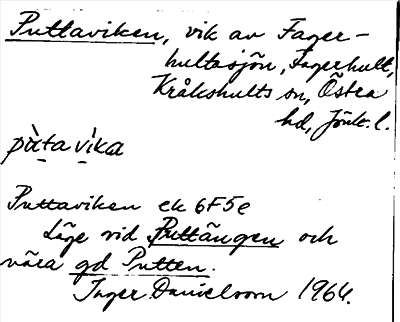 Puttaviken, vik av Fager-
hultasjön, Fagerhult,
Kråkshults sn, Östra
hd, Jönk. l.
pùta vìka
Puttaviken ek 6F5e
Läge vid Puttängen och
nära gd Putten.
Inger Danielsson 1964.